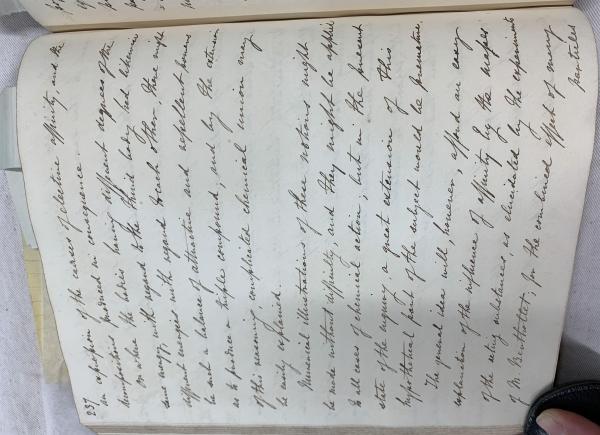 237
an expression of the causes of elective affinity, and the
decompositions produced in consequence.
Or where the bodies having different degrees of the
same energy, with regard to the third body had likewise
different energies with regard to each other, there might
be such a balance of attractive and repellent powers
as to produce a triple compound; and by the extension
of this reasoning complicated chemical union may
be easily explained.
Numerical illustrations of these notions might
be made without difficulty, and they might be applied
to all cases of chemical action, but in the present
state of the inquiry, a great extension of this
hypothetical part of the subject would be premature.
The general idea will, however, afford an easy
explanation of the influence of affinity by the masses
of the acting substances, as elucidated by the experiments
of M. Berthollet; for the combined effect of many
particles